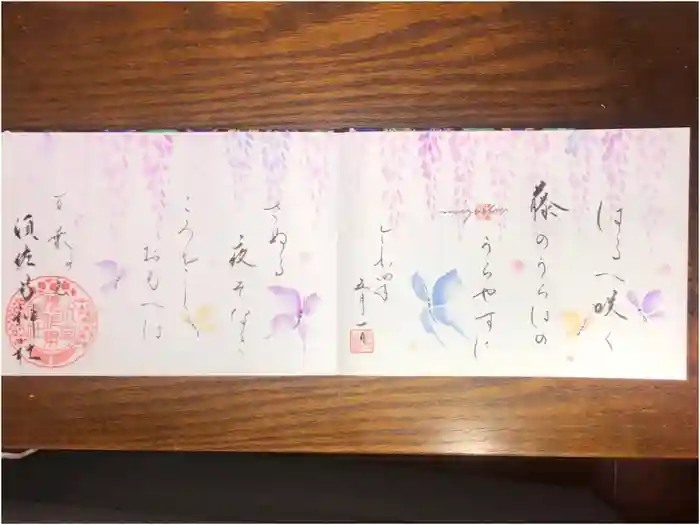 はるへ咲く
藤のうらはの
うらやすに
令和四年
五月一日
さぬる
夜そなき
ころをし
おもへは
神社